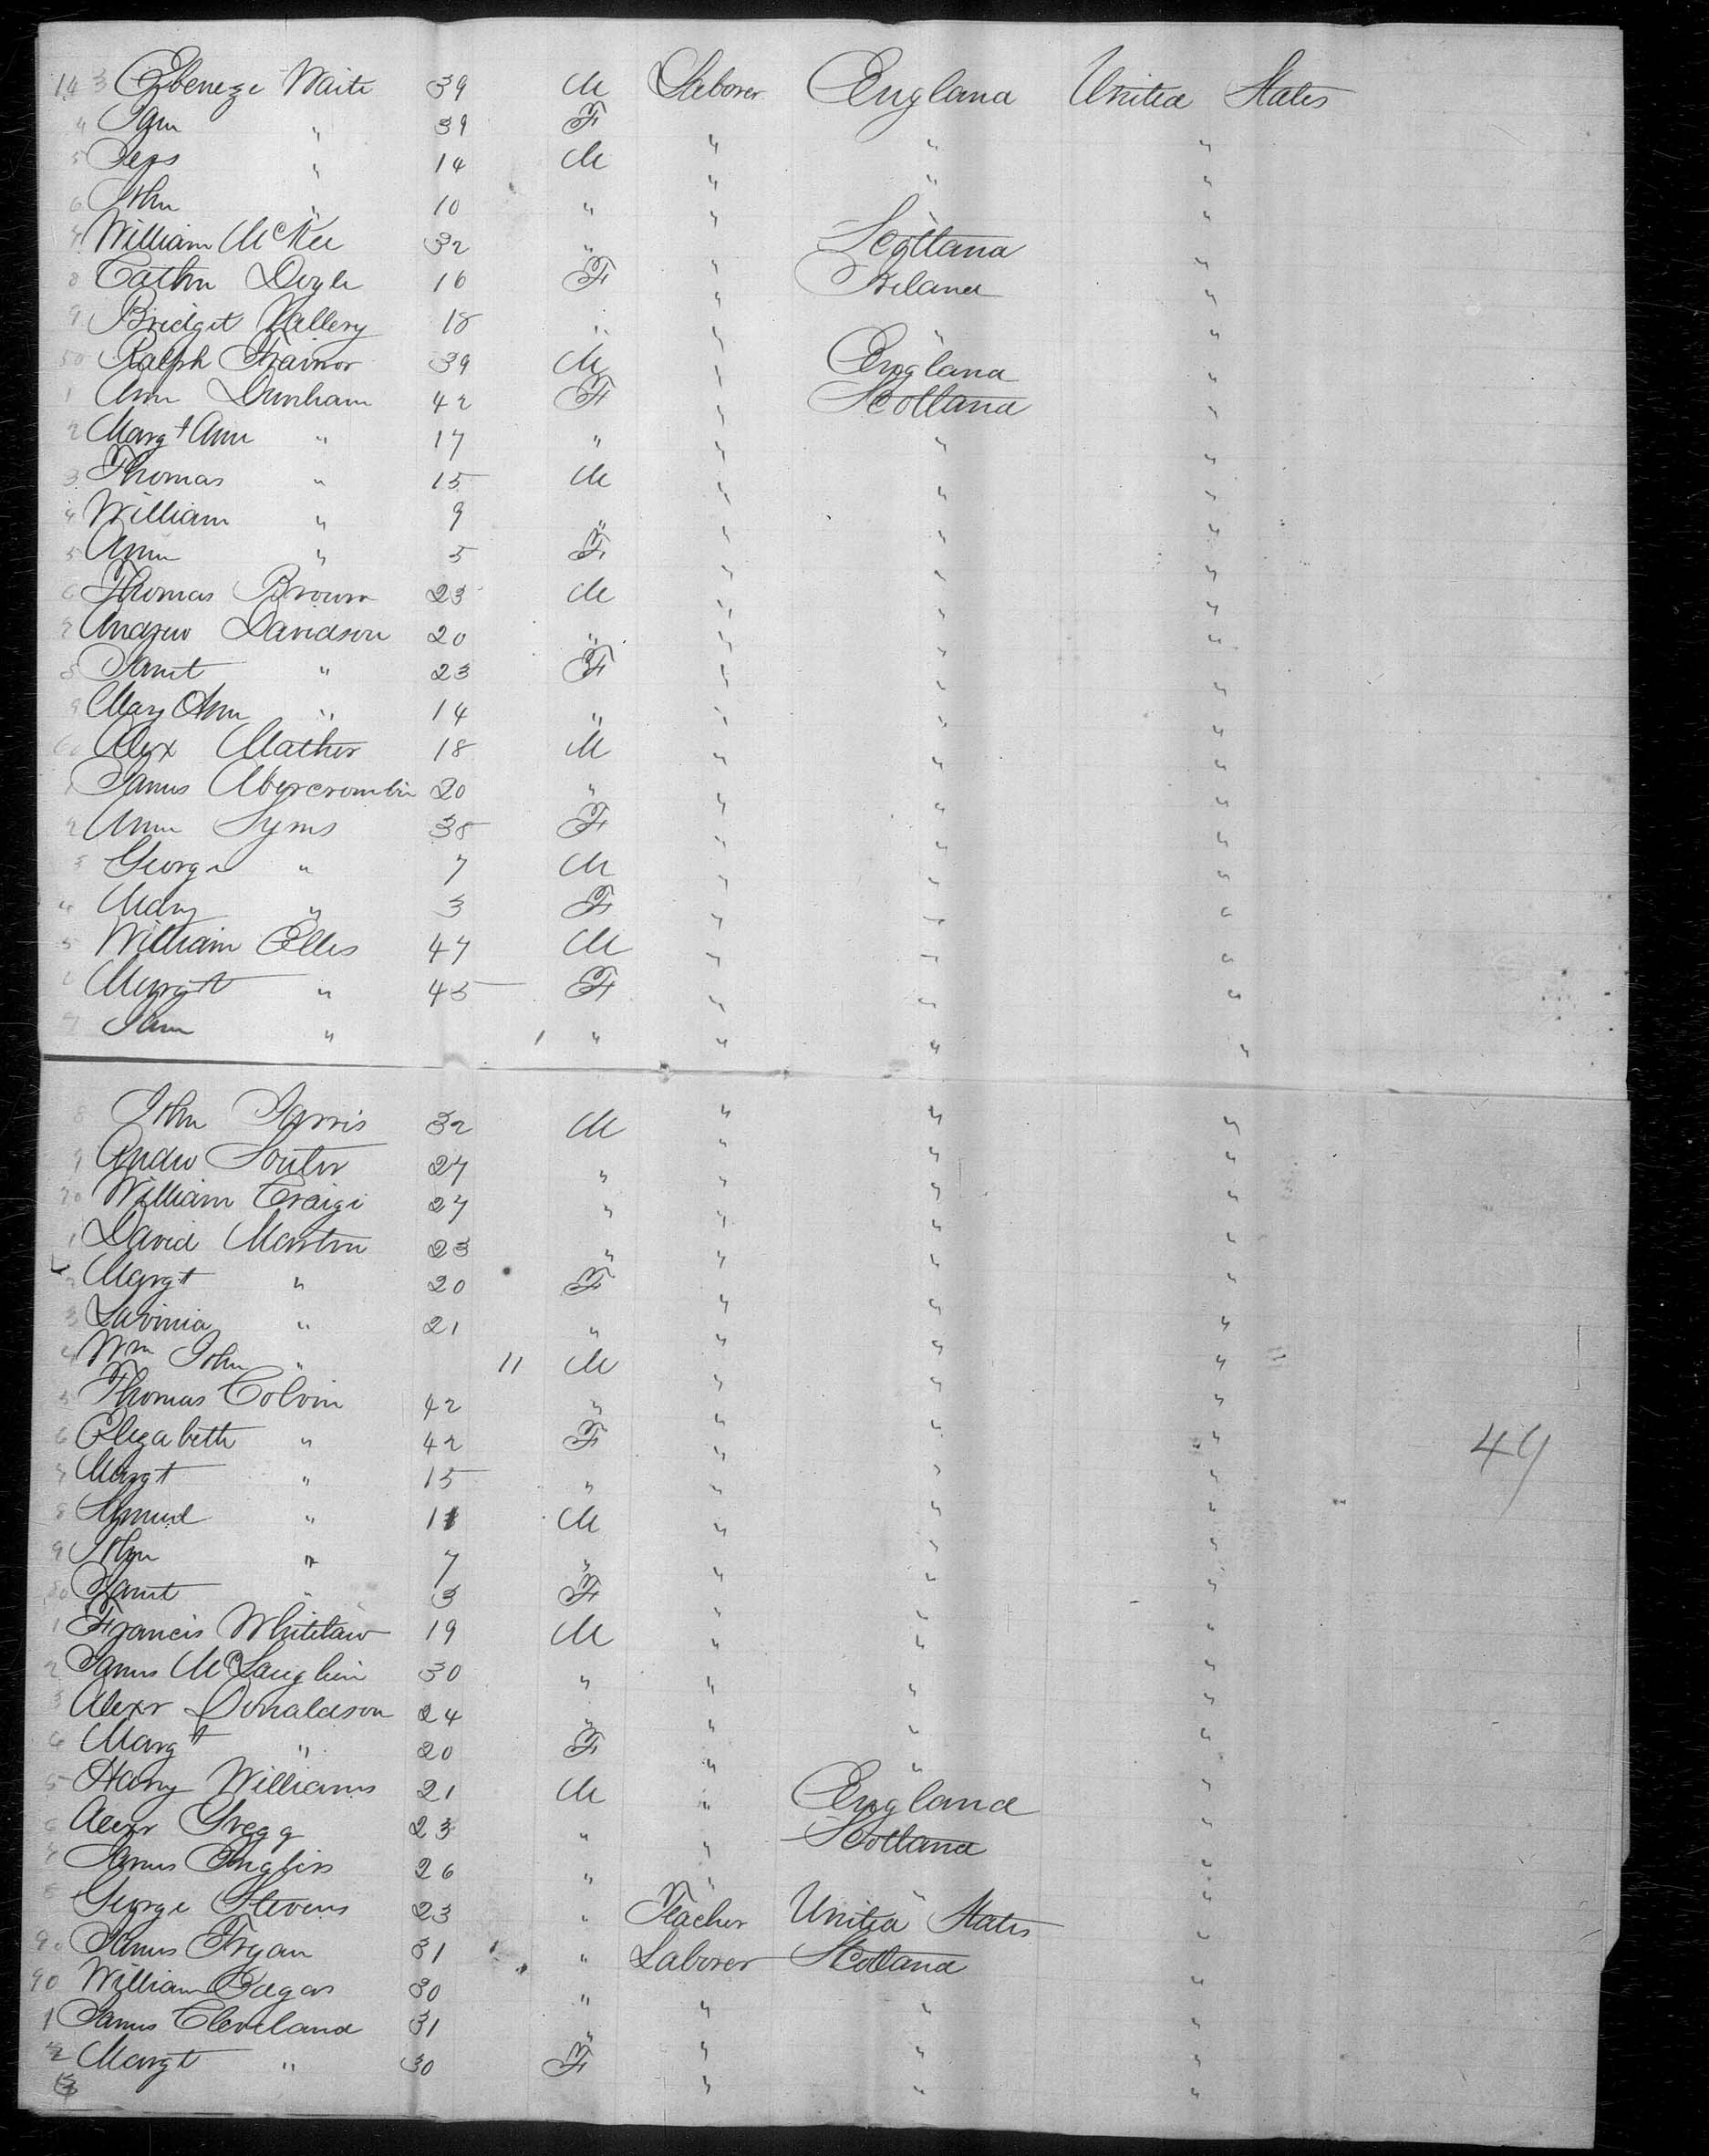 143 Ebeneze Waite 39 M Laborer England United States
4 Jane " 39 F " " "
5 " 14 M " " "
6 John " 10 " " " "
7 William McKee 32 " " Scotland "
8 Cathn Doyle 16 F " Ireland "
9 Bridget Vallery 18 " " " "
50 Ralph Trainor 39 M " England "
1 Ann Dunham 42 F " Scotland "
2 Margt Ann " 17 " " " "
3 Thomas " 15 M " " "
4 William " 9 " " " "
5 Ann " 5 F " " "
6 Thomas Brown 23 M " " "
7 Andrew Davidson 20 " " " "
8 Janet " 23 F " " "
9 Mary Ann " 14 " " " "
60 Alex Mather 18 M " " "
1 James Abercrombie 20 " " " "
2 Ann Syms 38 F " " "
3 George " 7 M " " "
4 Mary " 3 F " " "
5 William Ellis 47 M " " "
6 Margt " 45 F " " "
7 Jane " 1 " " " "
8 John Jarvis 32 M " " "
9 Andw Souter 27 " " " "
70 William Craige 27 " " " "
1 David Martin 23 " " " "
2 Margt " 20 F " " "
3 Lavinia " 21 " " " "
4 Wm John " 11 M " " "
5 Thomas Colvin 42 " " " "
6 Elizabeth " 42 F " " "
7 Margt " 15 " " " "
8 Samuel " 11 M " " "
9 John " 7 " " " "
80 Janet " 3 F " " "
1 Francis Whitelaw 19 M " " "
2 James McLaughlin 30 " " " "
3 Alexr Donaldson 24 " " " "
4 Margt " 20 F " " "
5 Harry Williams 21 M " England "
6 Alexr Gregg 23 " " Scotland "
7 James Engliss 26 " " " "
8 George Stevens 23 " Teacher United States "
90 James Fryan 31 " Laborer Scotland "
90 William Edgar 30 " " " "
1 James Cleveland 31 " " " "
2 Margt " 30 F " " "
49